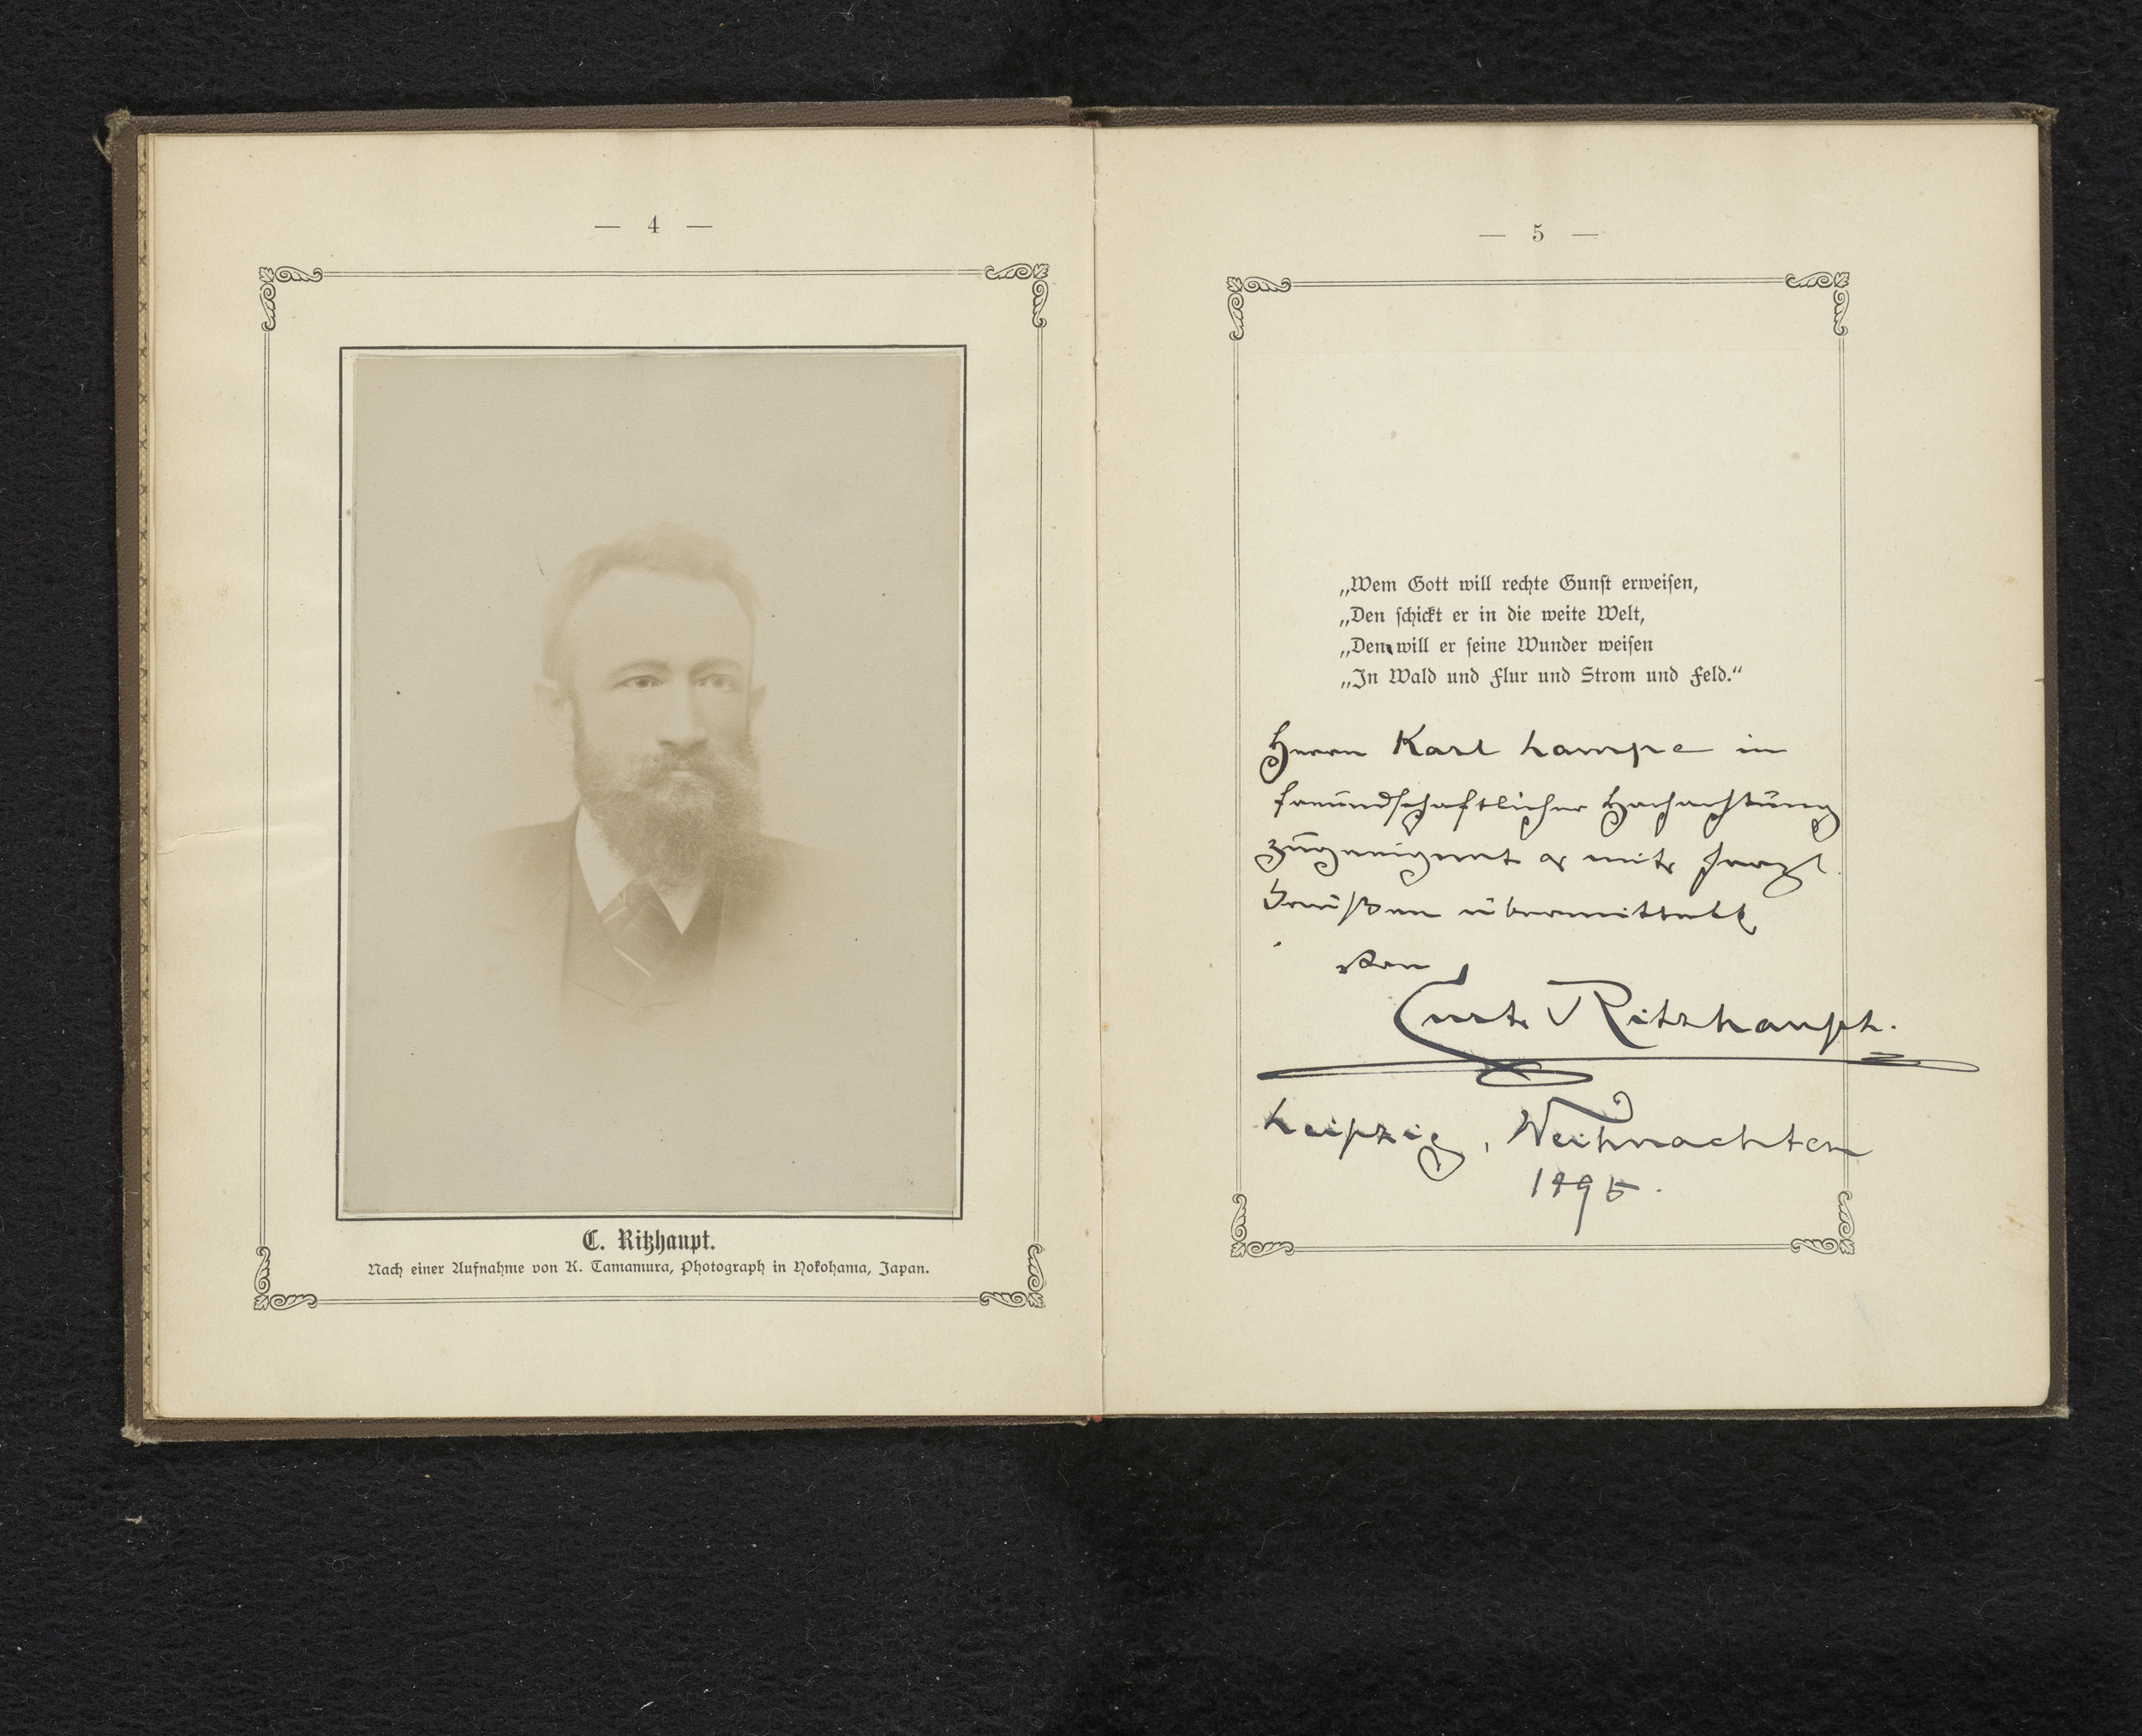 — 4 —
C. Ritzhaupt.
Nach einer Aufnahme von K. Tamamura, Photograph in Yokohama, Japan.
— 5 —
„Wem Gott will rechte Gunſt erweiſen,
„Den ſchickt er in die weite Welt,
„Dem will er ſeine Wunder weiſen
„In Wald und Flur und Strom und Feld.“
Herrn Karl Lampe in
freundschaftlicher Hochachtung
zugeeignet & mit herzl.
Grüßen übermittelt
von
Curt Ritzhaupt.
Leipzig, Weihnachten
1895.